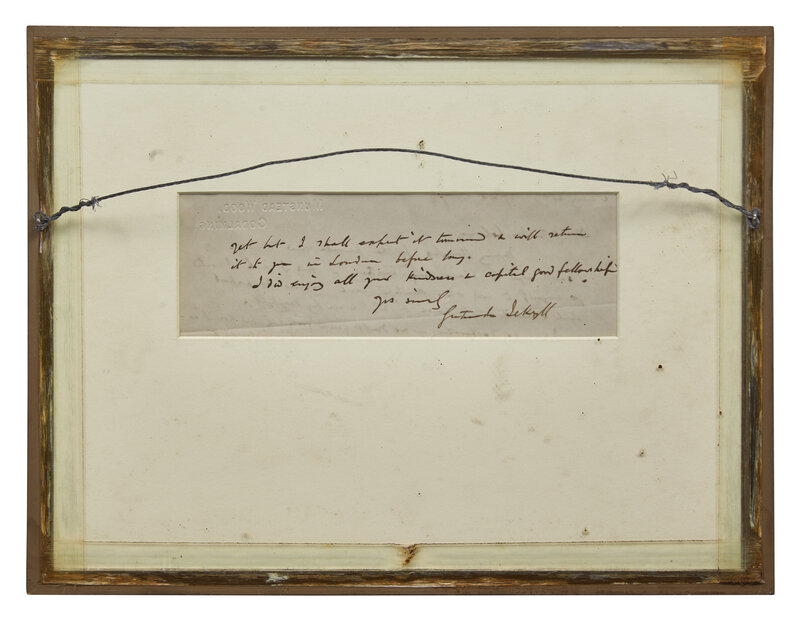 Munstead Wood,
Godalming.
yet but I shall expect it tomorrow & will return
it to you in London before long.
I did enjoy all your kindness & capital good fellowship
yrs sincly
Gertrude Jekyll